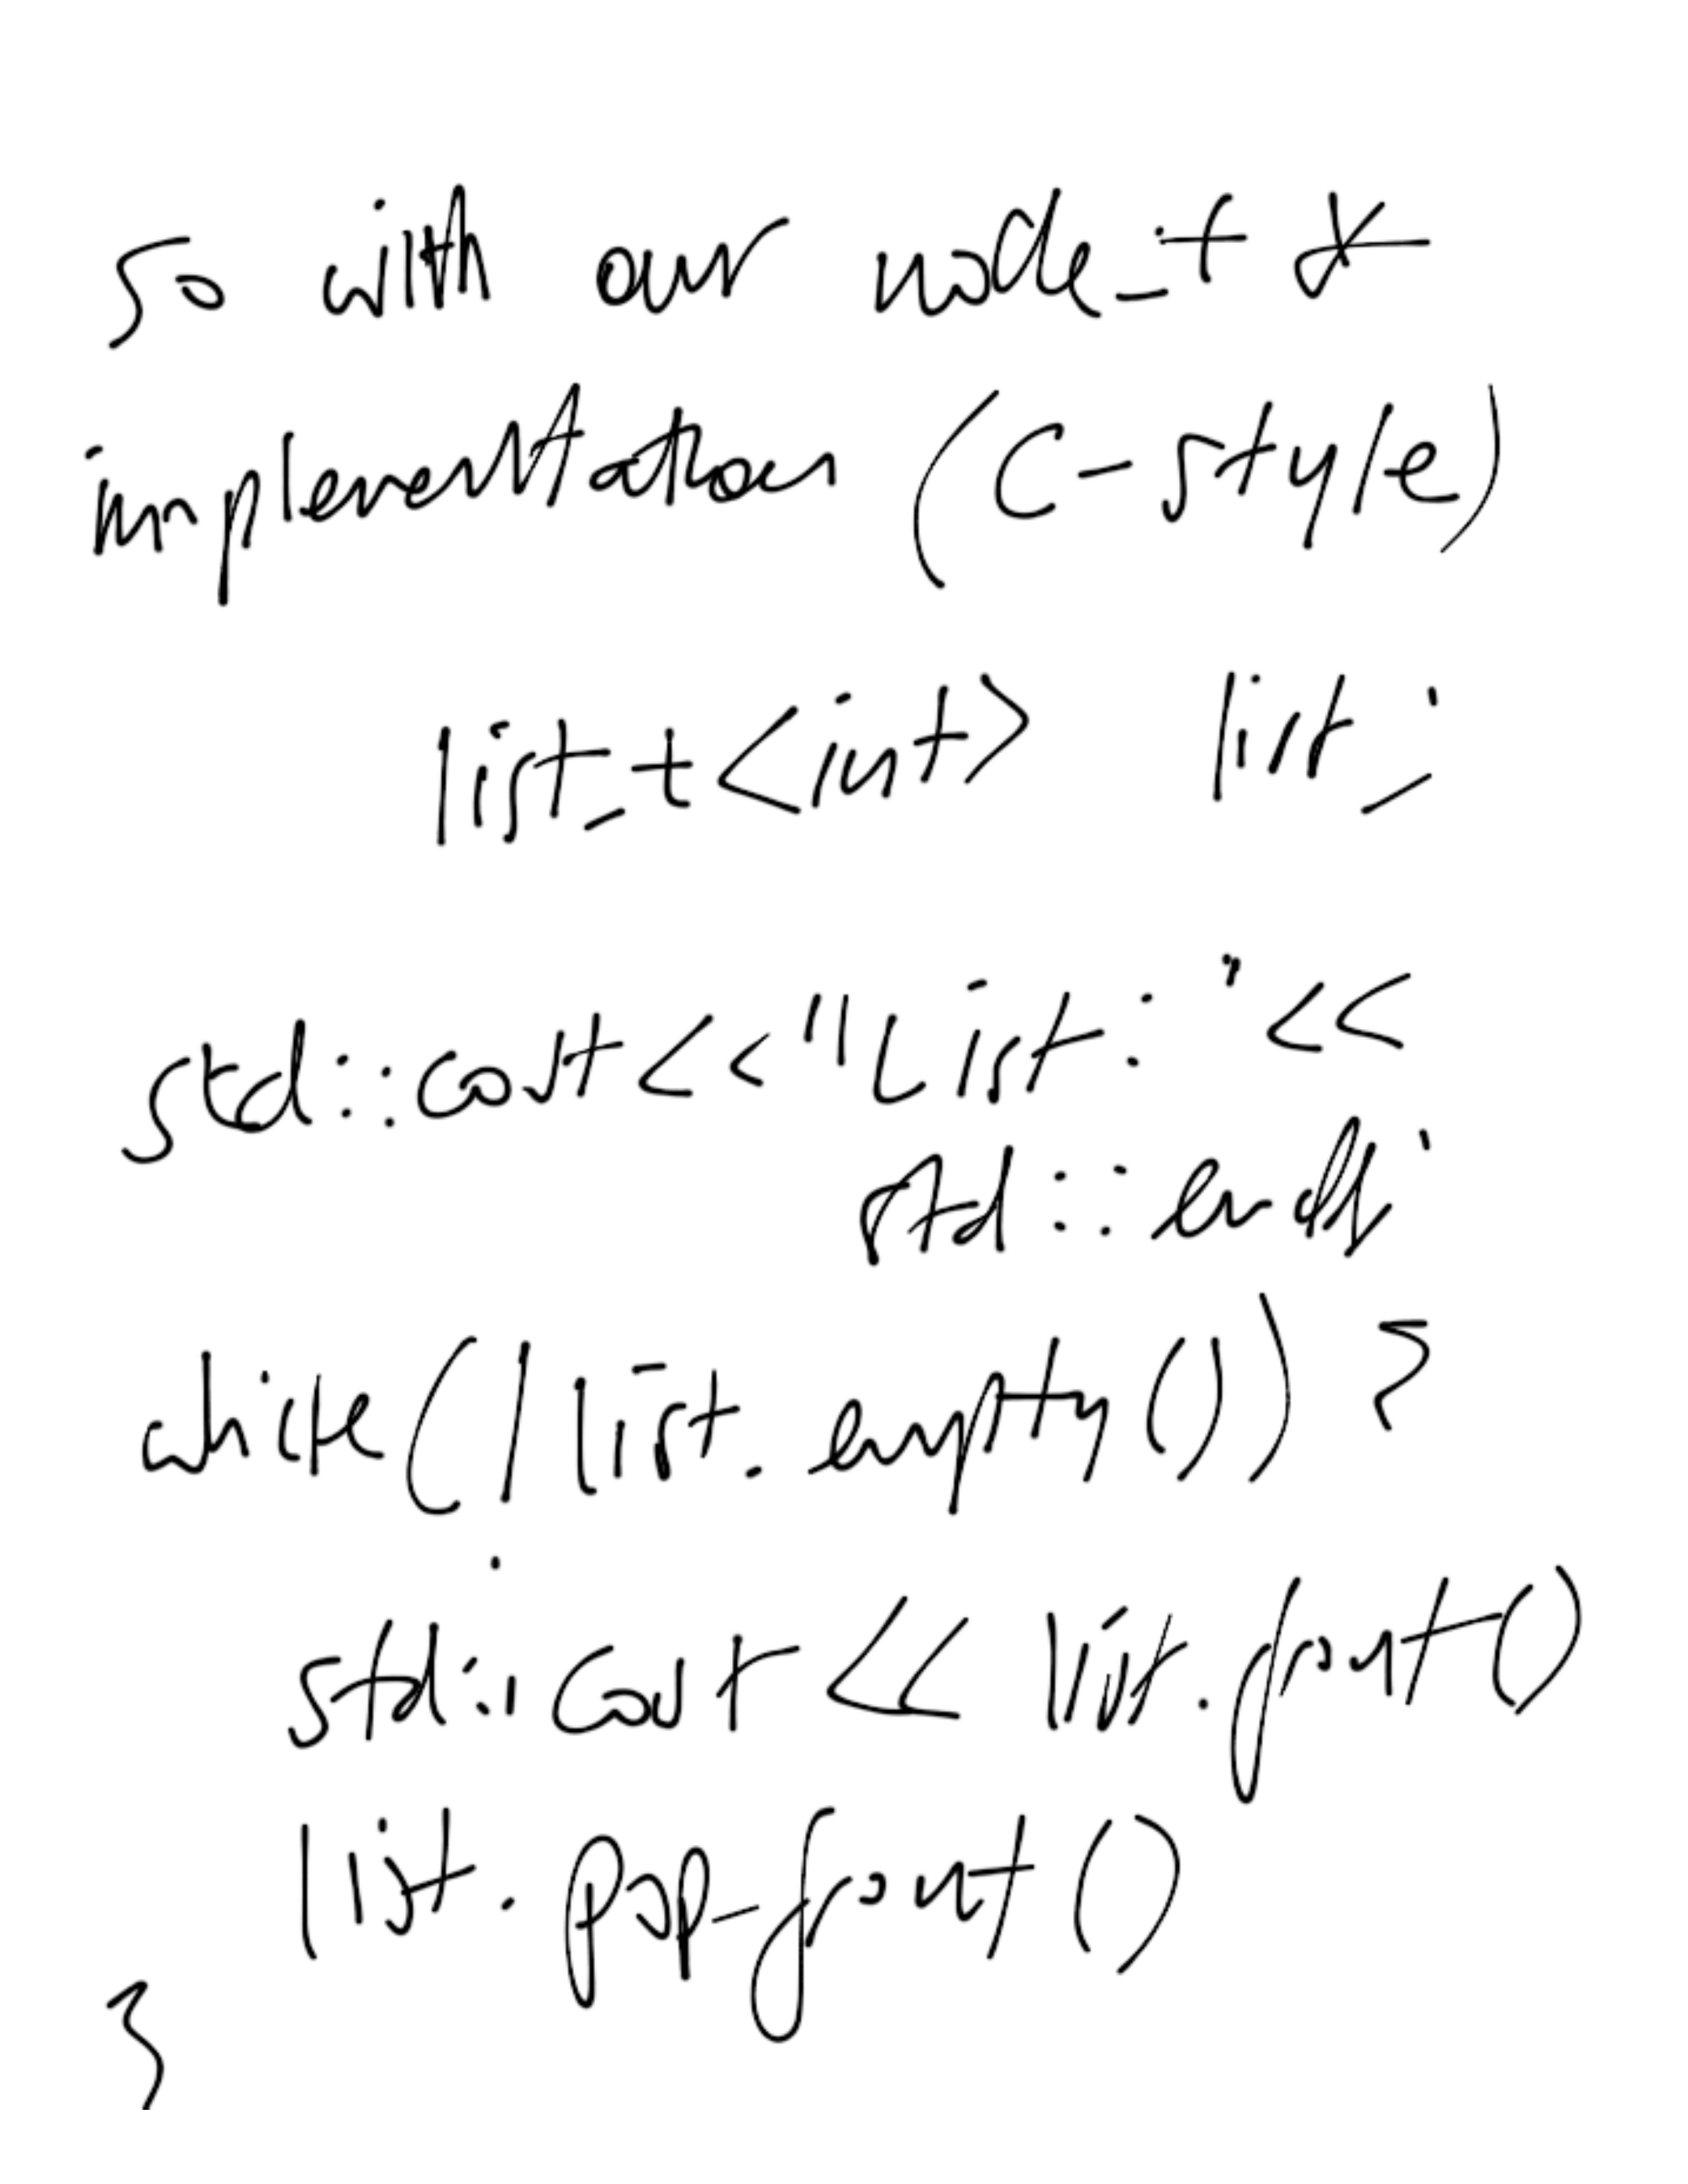 So with our node_t *
implementation (C-style)
list_t<int> list;
std::cout<<"List:"<<
std::endl;
while(!list.empty()) {
std::cout << list.front()
list.pop_front()
}